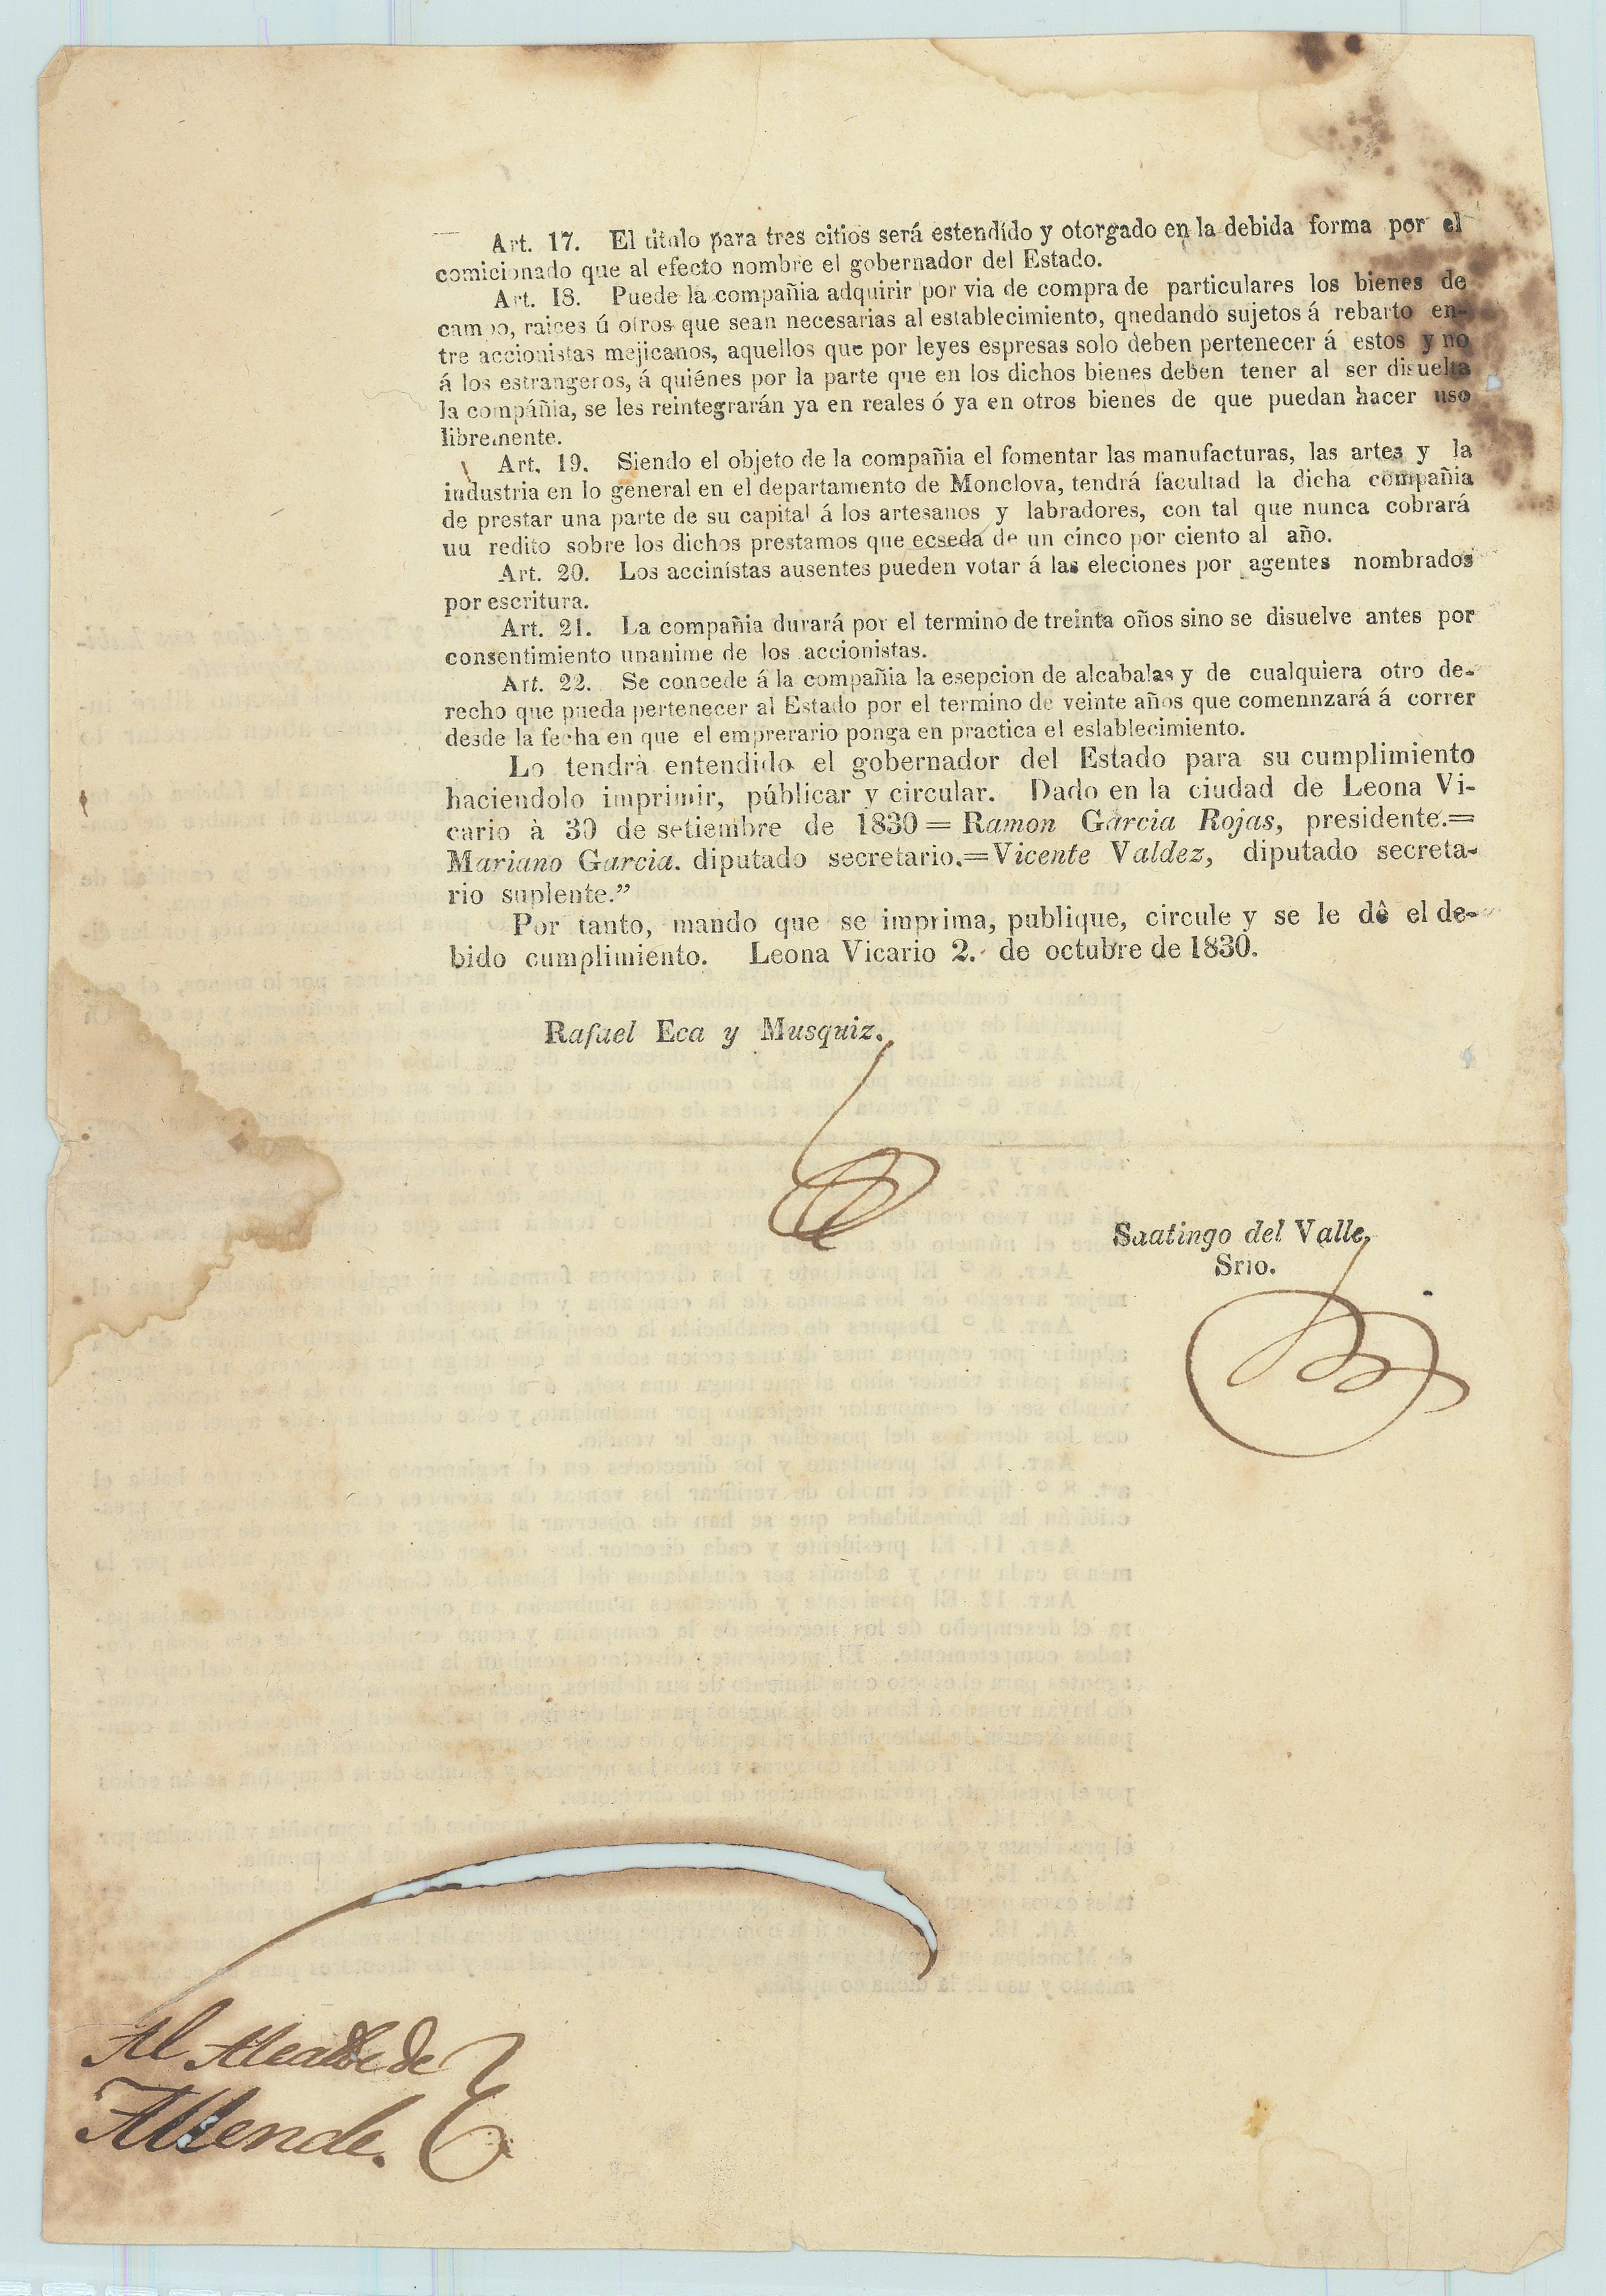 Art. 17. El titulo para tres citios será estendído y otorgado en la debida forma por el
comicionado que al efecto nombre el gobernador del Estado.
Art. I8. Puede la compañia adquirir por via de compra de particulares los bienes de
campo, raices ú otros que sean necesarias al establecimiento, qnedando sujetos á rebarto en-
tre accionistas mejicanos, aquellos que por leyes espresas solo deben pertenecer á estos y no
á los estrangeros, á quiénes por la parte que en los dichos bienes deben tener al ser disuelta
la compáñia, se les reintegrarán ya en reales ó ya en otros bienes de que puedan hacer uso
libremente.
Art. 19. Siendo el objeto de la compañia el fomentar las manufacturas, las artes y la
industria en lo general en el departamento de Monclova, tendrá facultad la dicha compañia
de prestar una parte de su capital á los artesanos y labradores, con tal que nunca cobrará
uu redito sobre los dichos prestamos que ecseda de un cinco por ciento al año.
Art. 20. Los accinístas ausentes pueden votar á las eleciones por agentes nombrados
por escritura.
Art. 21. La compañia durará por el termino de treinta oños sino se disuelve antes por
consentimiento unanime de los accionistas.
Art. 22. Se concede á la compañia la esepcion de alcabalas y de cualquiera otro de-
recho que pueda pertenecer al Estado por el termino de veinte años que comennzará á correr
desde la fecha en que el emprerario ponga en practica el eslablecimiento.
Lo tendrà entendido el gobernador del Estado para su cumplimiento
haciendolo imprimir, públicar y circular. Dado en la ciudad de Leona Vi-
cario à 30 de setiembre de 1830 = Ramon Garcia Rojas, presidente.=
Mariano Garcia. diputado secretario.=Vicente Valdez, diputado secreta-
rio suplente.”
Por tanto, mando que se imprima, publique, circule y se le dê el de-
bido cumplimiento. Leona Vicario 2. de octubre de 1830.
Rafael Eca y Musquiz.
Saatingo del Valle,
Srio.
Al Alcalde de
Allende.